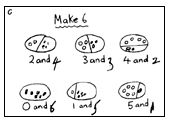 C
Make 6
2 and 4 3 and 3 4 and 2
0 and 6 1 and 5 5 and 1